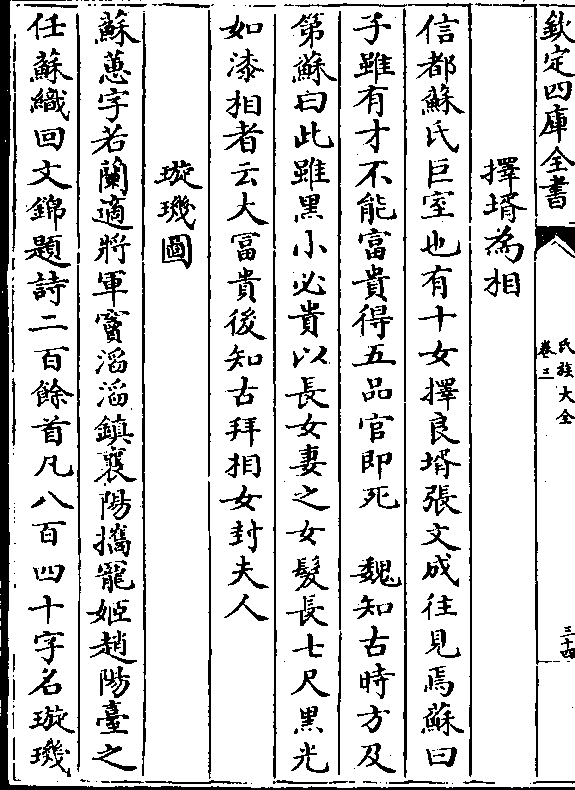 欽定四庫全書
氏族大全
卷三
三十四
擇壻為相
信都蘇氏巨室也有十女擇良壻張文成往見焉蘇曰
子雖有才不能富貴得五品官即死　魏知古時方及
第蘇曰此雖黑小必貴以長女妻之女髮長七尺黑光
如漆相者云大富貴後知古拜相女封夫人
璇璣圖
蘇蕙字若蘭適將軍竇滔滔鎮襄陽攜寵姬趙陽臺之
任蘇織回文錦題詩二百餘首凡八百四十字名璇璣